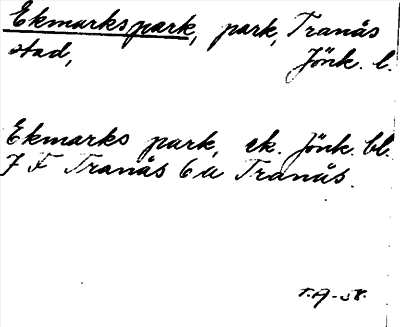 Ekmarkspark, park, Tranås
stad, Jönk. l.
Ekmarks park, ek. Jönk. bl.
7 F Tranås 6 a Tranås.
T.A-58.